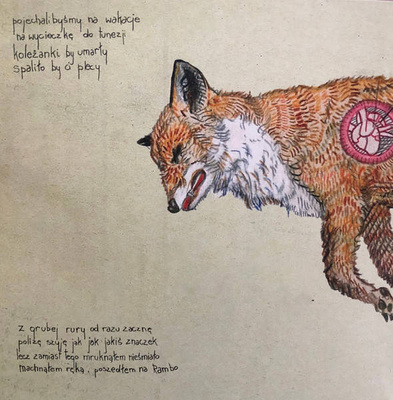 pojechalibyśmy na wakacje
na wycieczkę do tunezji
koleżanki by umarły
spaliło by ci plecy
z grubej rury od razu zacznę
poliżę szyję jak jak jakiś znaczek
lecz zamiast tego mruknąłem nieśmiało
machnąłem ręką, poszedłem na Rambo